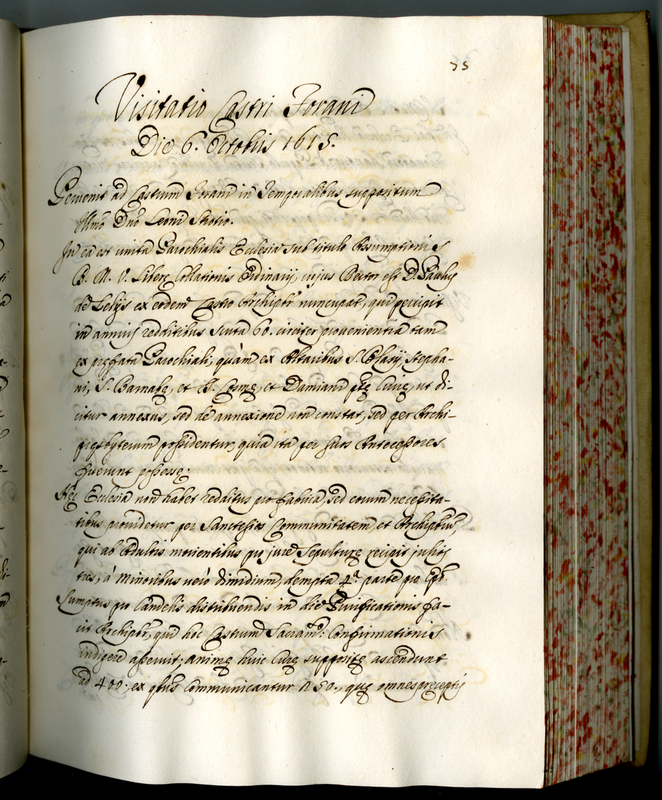 75
Visitatio Castri Forani
Die 6. Octobris 1615.
Pervenit ad Castrum Forani in temporalibus suppositum
Illmo Dno Leoni Strotio.
In ea est unita Parochialis Ecclesia sub titulo Assumptionis
B. M. V. liberę Collationis Ordinarij, cujus Rector est D. Paulus
de Lelijs ex eodem Castro Archipr nuncupat, qui percipit
in annuis redditibus scuta 60. circiter provenientia tam
ex prefata Parochiali, quàm ex Altaribus S. Blasij Stepha-
ni, S. Barnabę, et S. Cosmę, et Damiani ptę Curę, ut di-
citur annexis, sed de annexione non constat, sed per Archi-
presbyterum possidentur, quia ità per suos Antecessores
fuerunt possessę.
Hęc Ecclesia non habet redditus pro fabrica, sed eorum necessita-
tibus providetur per Sanctesios Communitatem, et Archiptrũ,
qui ab Adultis morientibus pro jure Sepulturę recipit julios
tres, à minoribus verò dimidium, dempta 4ª parte pro Epõ.
Sumptus pro Candelis distribuendis in die Purificationis fa-
cit Archiptr, qui hoc Castrum Sacramo Confirmationis
indigere asseruit, animę huic Curę suppositę ascendunt
ad 400, ex qbus Communicantur 250., quę omnes preceptis